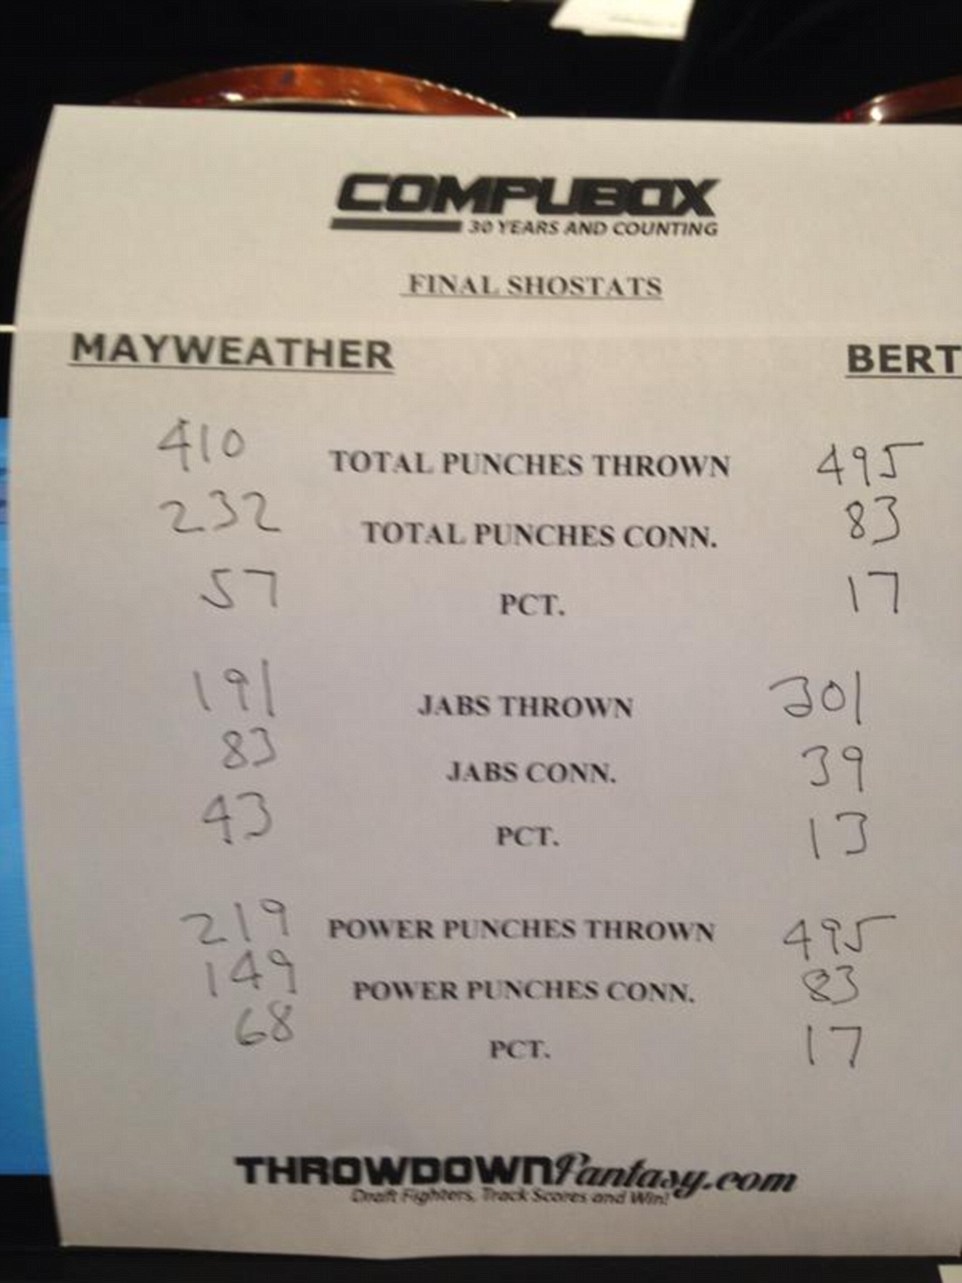 COMPUBOX
30 YEARS AND COUNTING
FINAL SHOSTATS
MAYWEATHER BERT
410 TOTAL PUNCHES THROWN 495
232 TOTAL PUNCHES CONN. 83
57 PCT. 17
191 JABS THROWN 301
83 JABS CONN. 39
43 PCT. 13
219 POWER PUNCHES THROWN 495
149 POWER PUNCHES CONN. 83
68 PCT. 17
THROWDOWNFantasy.com
Draft Fighters, Track Scores and Win!